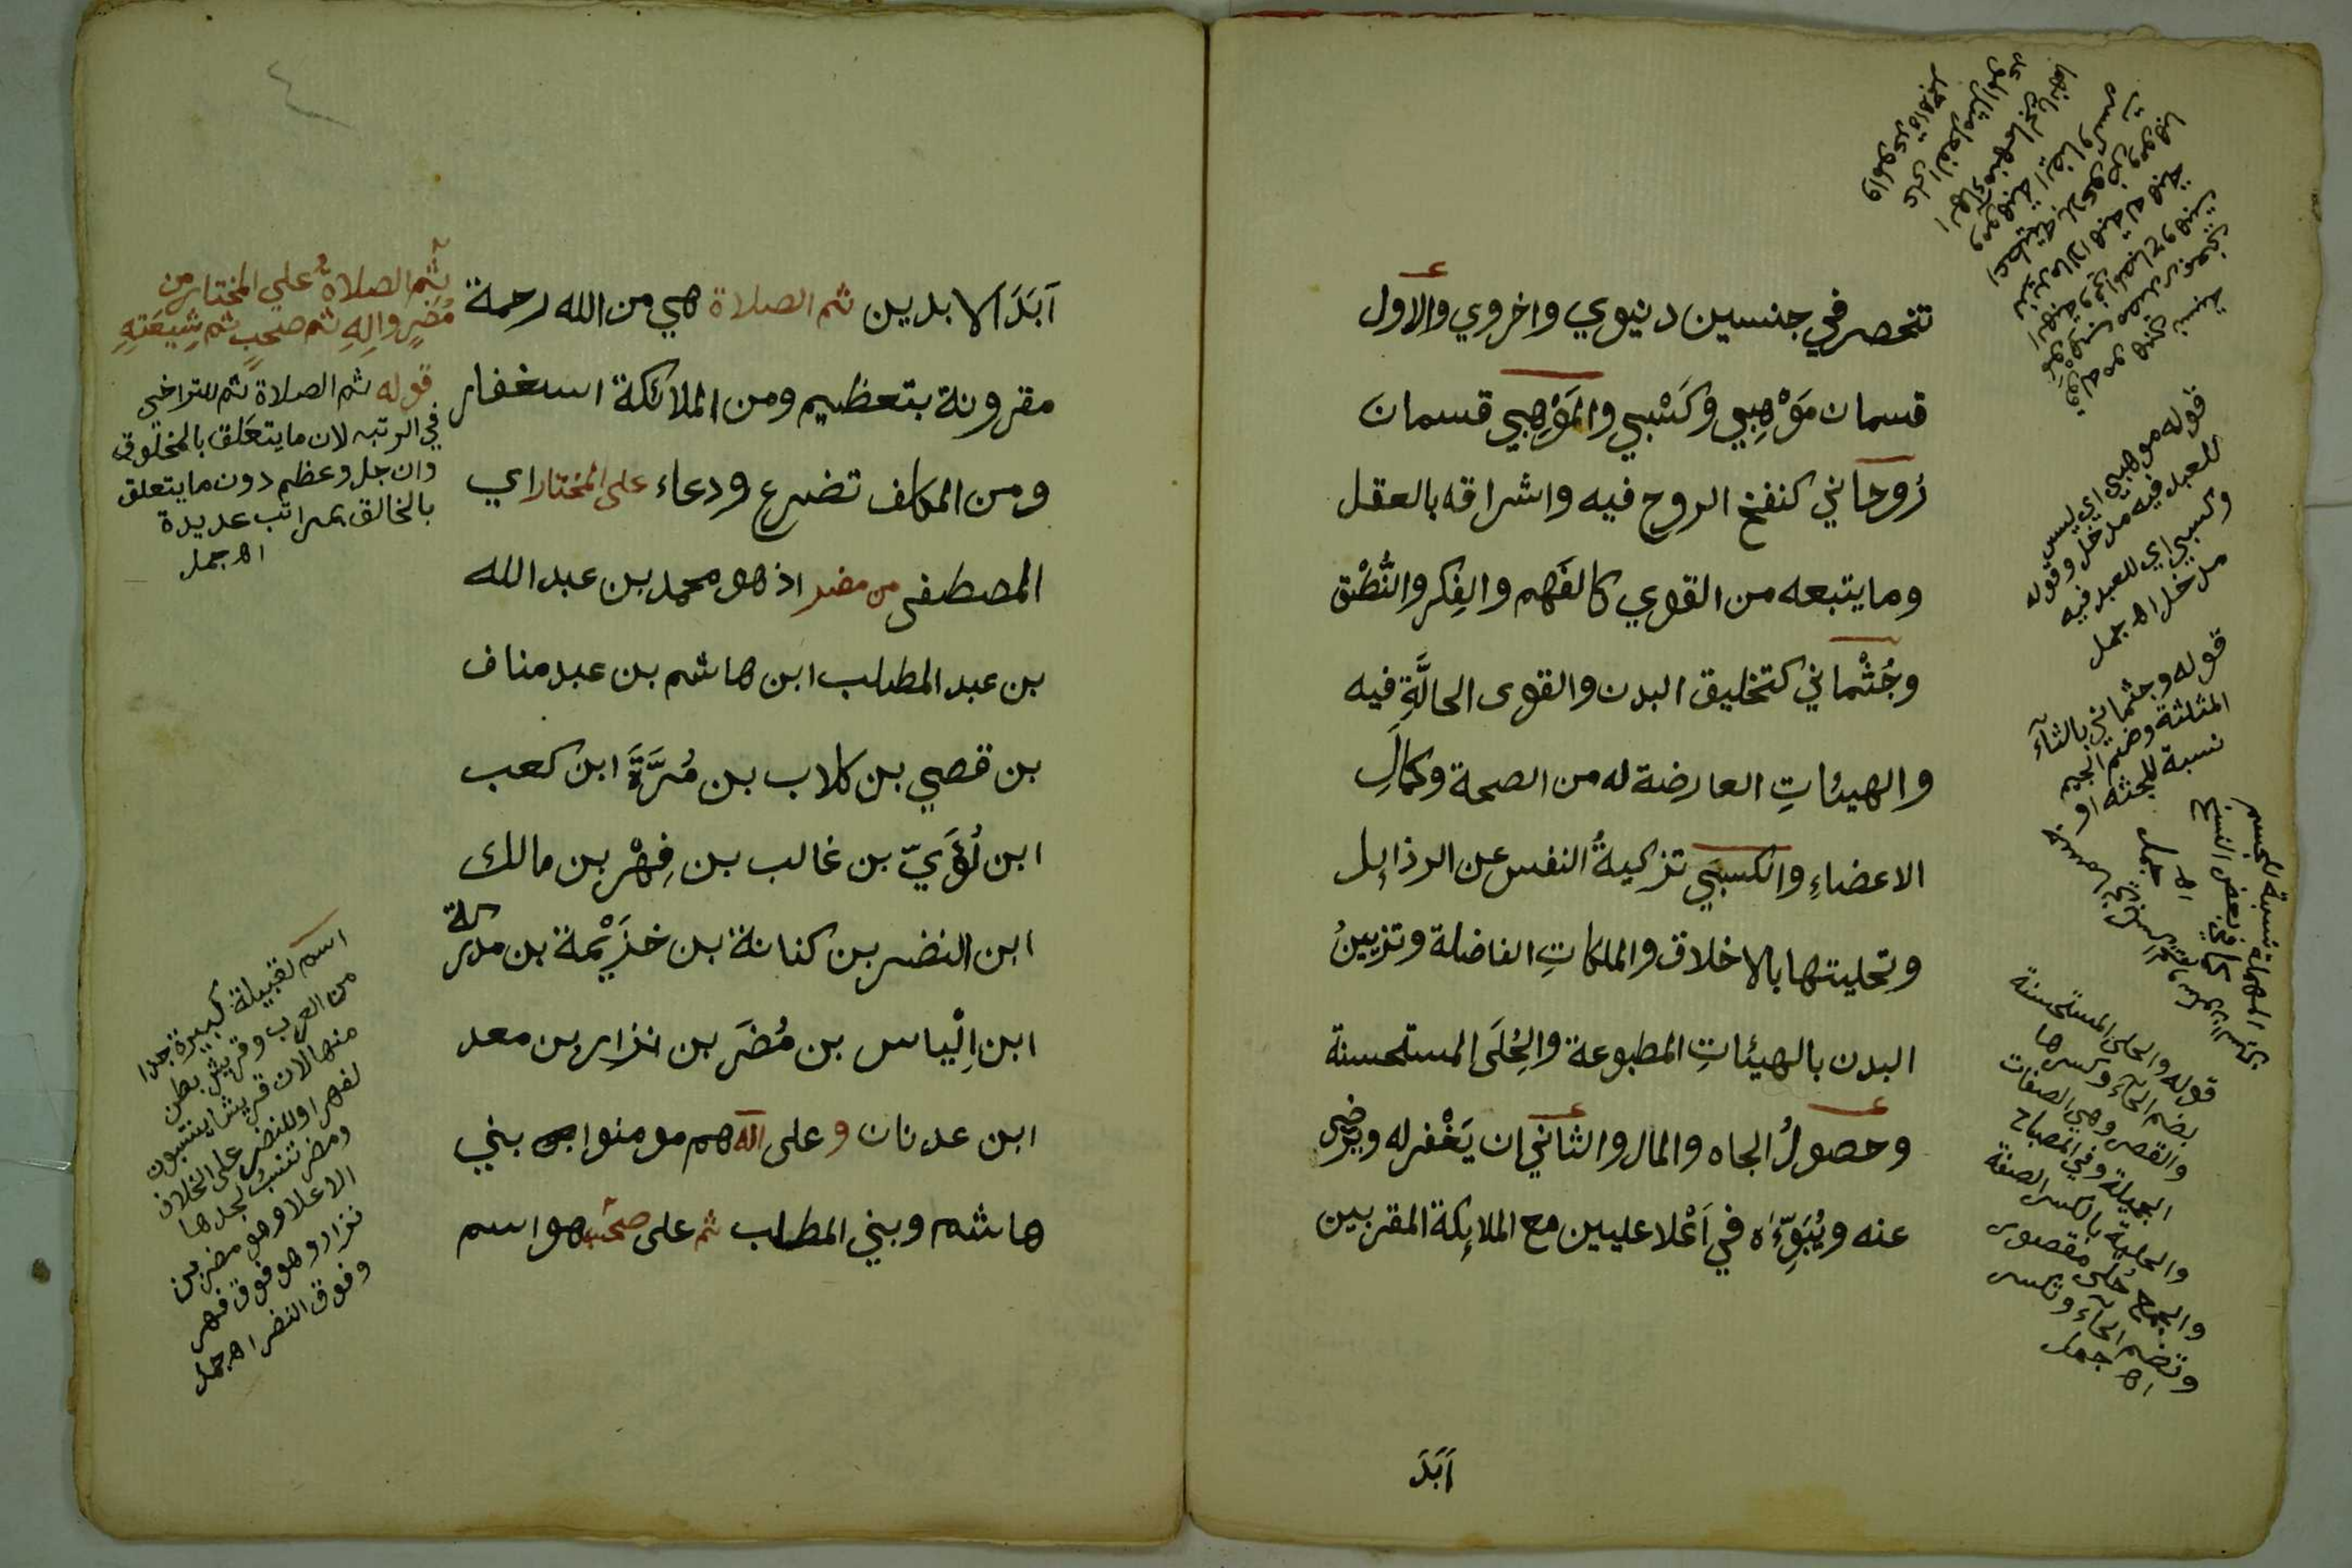 تنحصر في جنسين دنيوي واخروي والاول
قسمان مَوْهِبِي وكَسْبي والمَوْهِبي قسمان
رُوحاني كنفخ الروح فيه واشراقه بالعقل
وما يتبعه من القوي كالفَهم والفِكر والنُّطْق
وجُثْماني كتخليق البدن والقوى الحالَّةِ فيه
والهيئاتِ العارضة له من الصحة وكمالِ
الاعضاءِ والكسبي تزكيةُ النفس عن الرذايل
وتحليتها بالاخلاق والملكاتِ الفاضلة وتزيينُ
البدن بالهيئاتِ المطبوعة والحُِلَى المستحسنة
وحصولُ الجاه والمال والثاني ان يَغْفر له ويرضى
عنه ويُبَوِّءَه في اَعْلا عليين مع الملايكة المقربين
اَبَدَ
قوله موهبي اي ليس
للعبد فيه مدخل وقوله
وكسبي اي للعبد فيه
مدخل اه جمل
قوله وجثماني بالثآء
المثلثة وضم الجيم
نسبة للجثه او
المهملة نسبة للجسم
كما في بعض النسخ
اه جمل
قوله والحلى المستحسنة
بضم الحآء وكسرها
والقصر وهي الصفات
الجميلة وفي المصباح
والحلية بالكسر الصفة
والجمع حُلى مقصور
وتضم الحآء وتكسر
اه جمل
اَبَدَ الابدين ثم الصلاة هي من الله رحمة
مقرونة بتعظيم ومن الملائكة استغفار
ومن المكلف تضرع ودعاء على المختار اي
المصطفى من مضر اذ هو محمد بن عبد الله
بن عبد المطلب ابن هاشم بن عبد مناف
بن قصي بن كلاب بن مُرَّةَ ابن كعب
ابن لُؤَيّ بن غالب بن فِهْر بن مالك
ابن النضر بن كنانة بن خزَيْمة بن مدركة
ابن اِلْياس بن مُضَر بن نزار بن معد
ابن عدنان وعلى اله هم مومنوا بني
هاشم وبني المطلب ثم على صحْبه هو اسم
ثُم الصلاةُ علي المختار من
مُضَرٍ واٰلِهِ ثم صحبٍ ثم شِيعَتِهِ
قوله ثم الصلاة ثم للتراخي
في الرتبه لان ما يتعَلق بالمخلوق
وان جل وعظم دون ما يتعلق
بالخالق بمراتب عديدة
اه جمل
اسم لقبيلة كبيرة جدا
من العرب وقريش بطن
منها لان قريشا ينتسبون
لفهر او للنضر على الخلاف
ومضر تنتسب لجدها
الاعلا وهو مضر بن
نزار وهو فوق فهر
وفوق النضر اه جمل